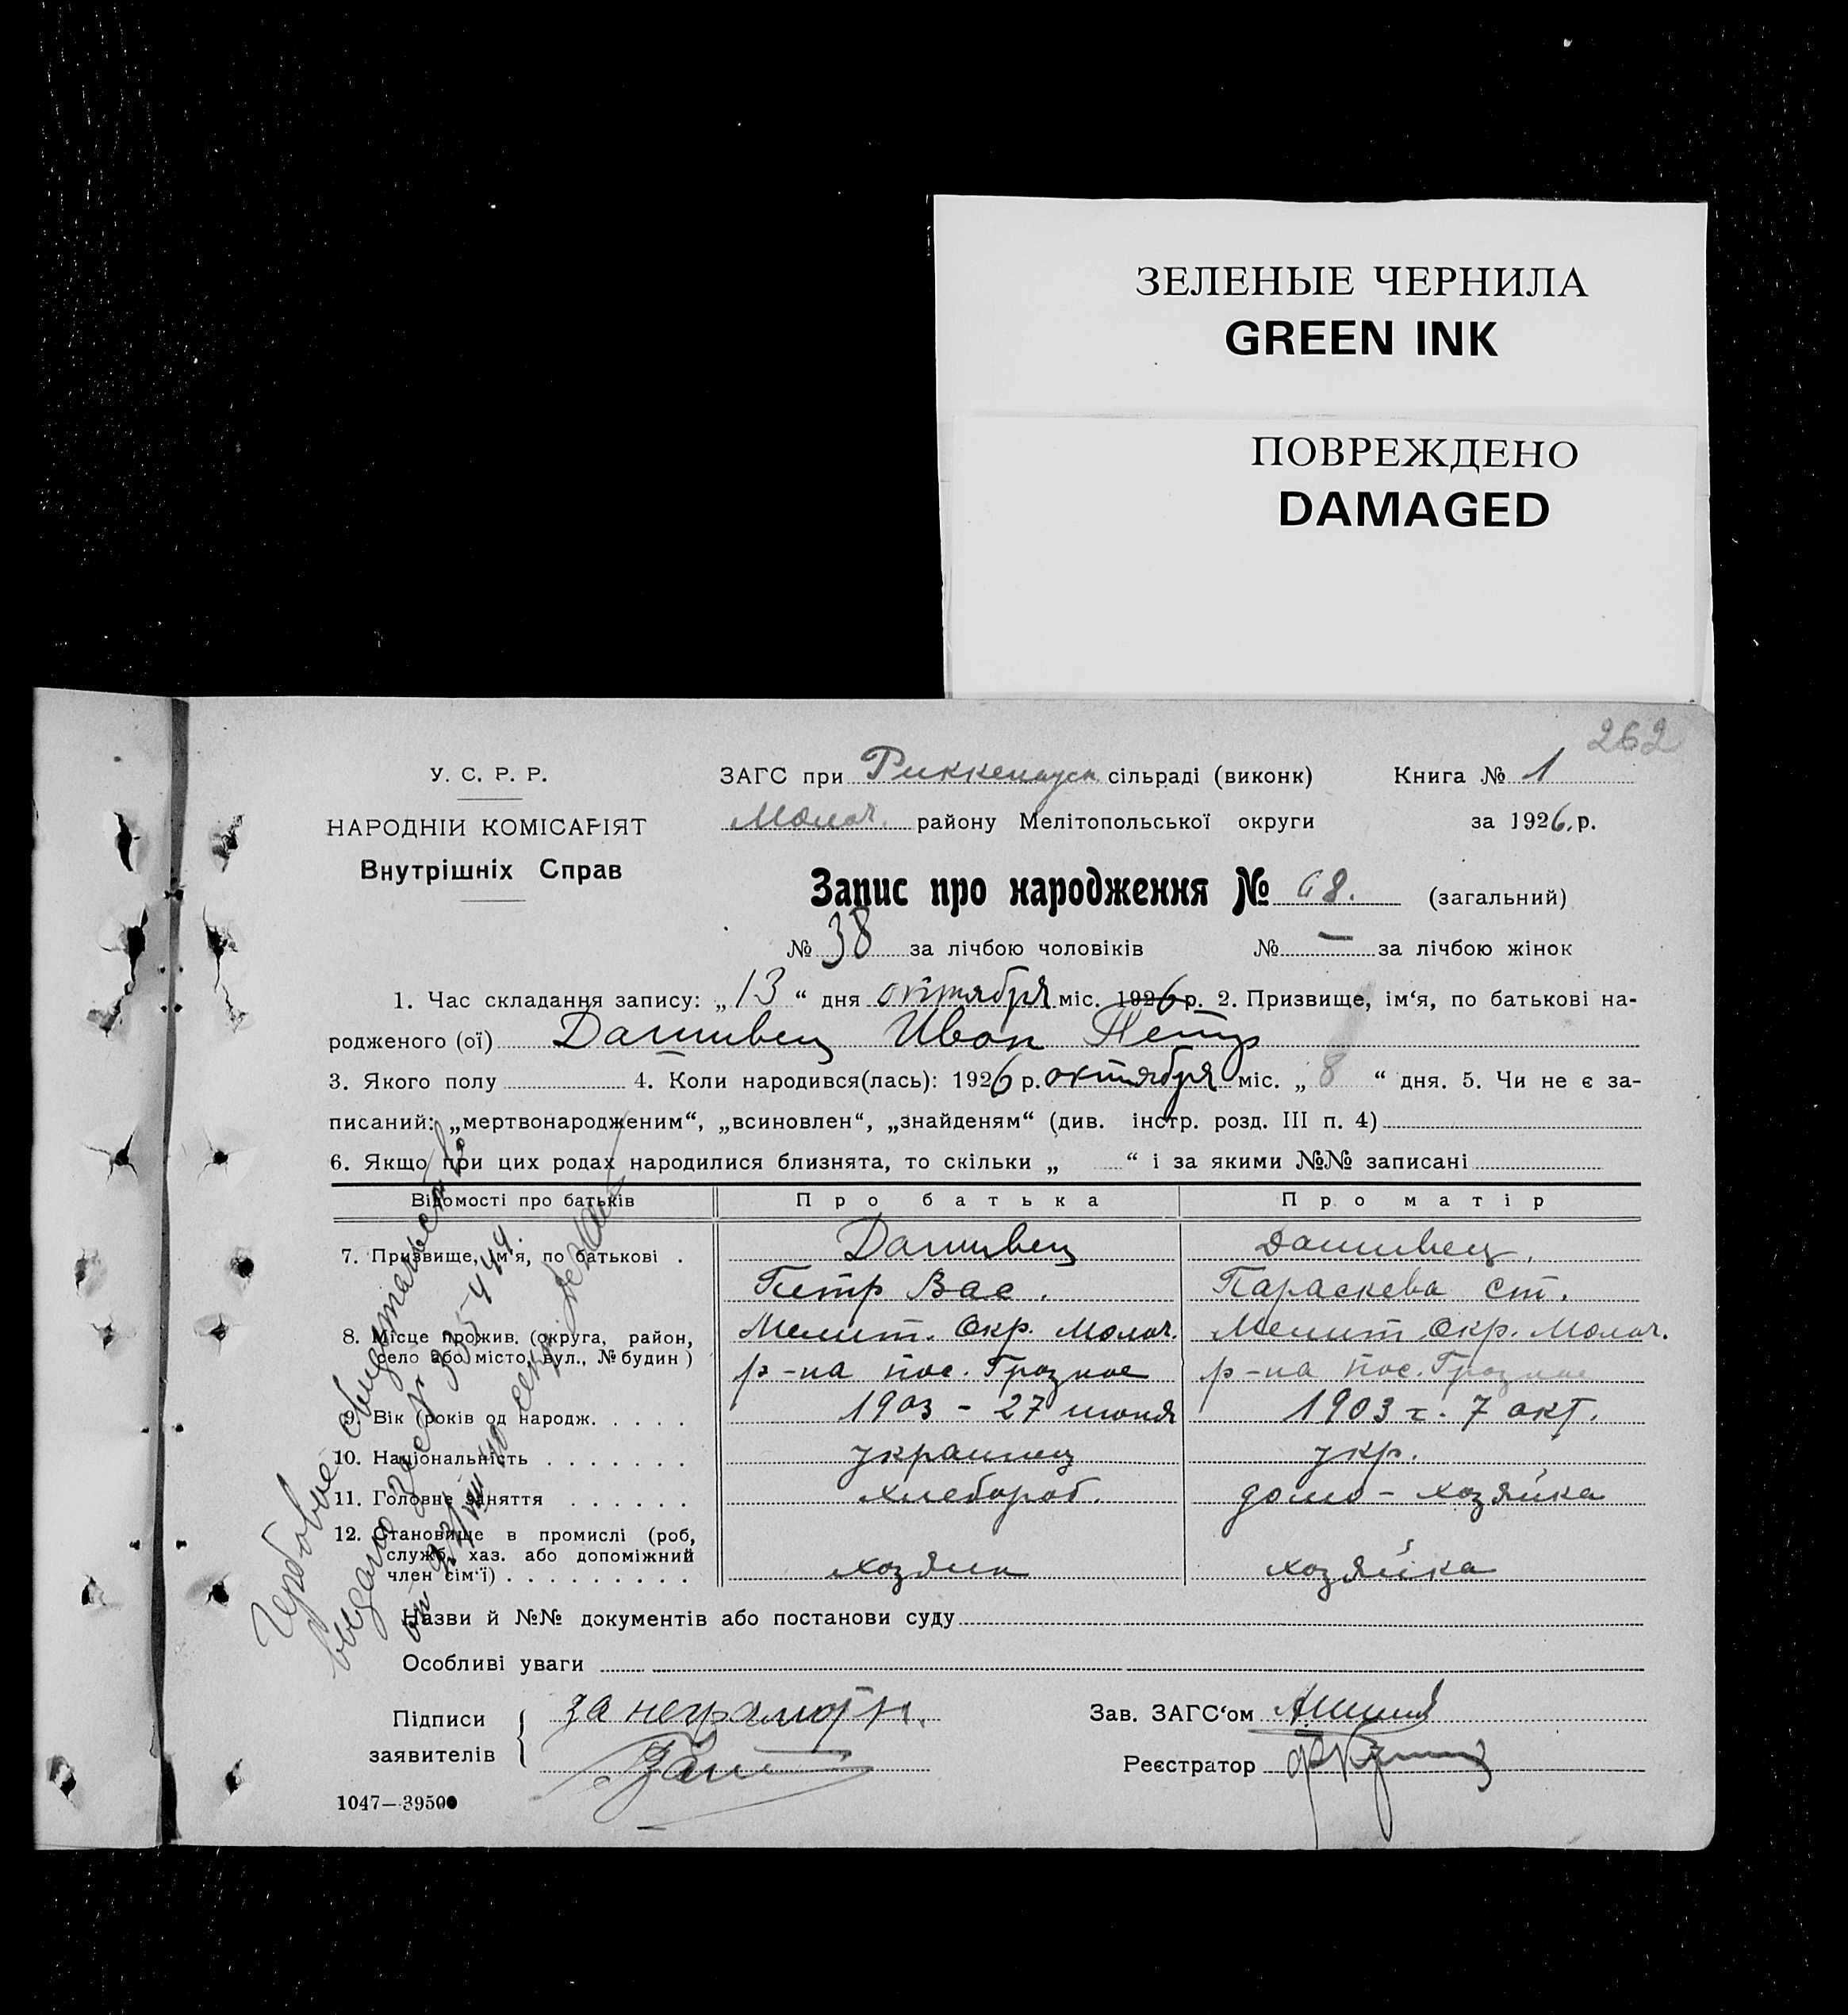 ЗЕЛЕНЫЕ ЧЕРНИЛА
GREEN INK
ПОВРЕЖДЕНО
DAMAGED
262
У. С. Р. Р.
НАРОДНІЙ КОМІСАРІЯТ
Внутрішніх Справ
ЗАГС при сільраді (виконк) Книга № 1
Молоч. району Мелітопольської округи за 1926 р.
Запис про народження № 68. (загальний)
№ 38 за лічбою чоловіків № — за лічбою жінок
1. Час складання запису: „13“ дня октября міс. 1926 р. 2. Призвище, ім‘я, по батькові на-
родженого (ої) Иван Петр
3. Якого полу 4. Коли народився(лась): 1926 р. октября міс. „8“ дня. 5. Чи не є за-
писаний: „мертвонародженим“, „всиновлен“, „знайденям“ (див. інстр. розд. III п. 4)
6. Якщо при цих родах народилися близнята, то скільки „ “ і за якими №№ записані
Відомості про батьків Про батька Про матір
7. Призвище, ім‘я, по батькові .
Петр Вас. Параскева Ст.
8. Місце прожив. (округа, район, село або місто, вул., № будин) Мелит. Окр. Молоч. Мелит. Окр. Молоч.
р-на пос. Грозное р-на пос. Грозное
9. Вік (років од народж. . . . . 1903 - 27 июня 1903 г. 7 окт.
10. Національність . . . . . . . украинец укр.
11. Головне заняття . . . . . . хлебороб. домо-хозяйка
12. Становище в промислі (роб, служб, хаз. або допоміжний член сім‘ї) . . . . . . . . . хозяин хозяйка
Назви й №№ документів або постанови суду
Особливі уваги
Підписи заявителів за неграмотн.
Зав. ЗАГС‘ом
Реєстратор
1047—39500
Гербовое свидетельство
выдано